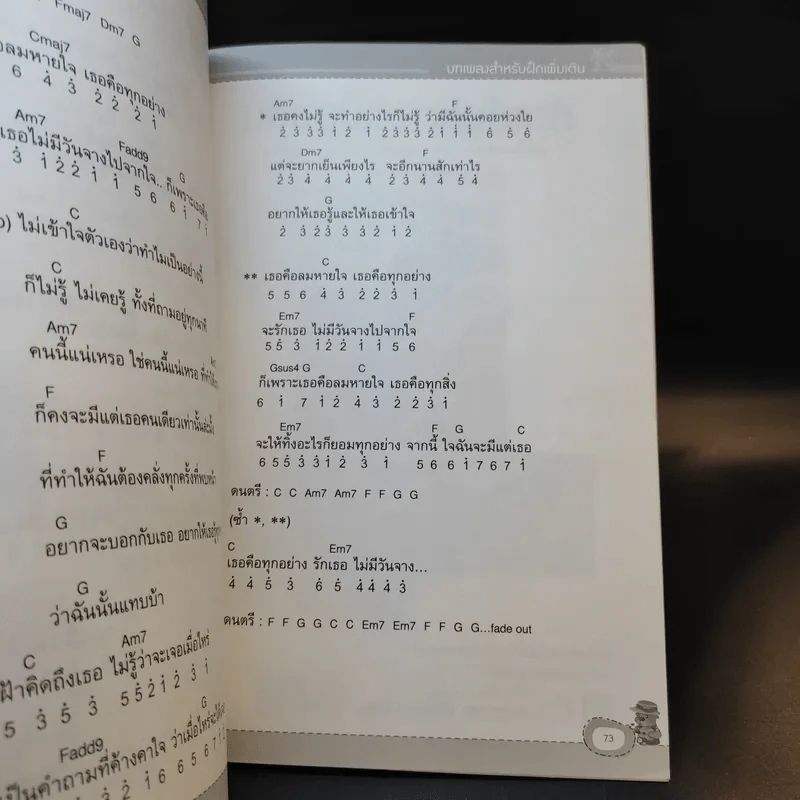 Fmaj7 Dm7 G
Cmaj7
ลมหายใจ เธอคือทุกอย่าง
6 4̇ 3̇ 2̇ 2̇ 2̇ 1̇
Am7 Fadd9 G
เธอไม่มีวันจางไปจากใจ.. ก็เพราะเธอคือ
3̇ 1̇ 2̇ 2̇ 1̇ 1̇ 5 6 6 1̇ 7 1̇
C
ไม่เข้าใจตัวเองว่าทำไมเป็นอย่างนี้
C
ก็ไม่รู้ ไม่เคยรู้ ทั้งที่ถามอยู่ทุกนาที
Am7
คนนี้แน่เหรอ ใช่คนนี้แน่เหรอ
F
ก็คงจะมีแต่เธอคนเดียวเท่านั้น
F
ที่ทำให้ฉันต้องคลั่งทุกครั้งที่พบหน้า
G
อยากจะบอกกับเธอ อยากให้เธอ
G
ว่าฉันนั้นแทบบ้า
C Am7
ฝ้าคิดถึงเธอ ไม่รู้ว่าจะเจอเมื่อไหร่
5 3̇ 5̇ 3̇ 5 5̇ 2̇ 1̇ 2̇ 3̇ 1̇
Fadd9 G
เป็นคำถามที่ค้างคาใจ ว่าเมื่อไหร่
1̇ 6 6 5 6 7
บทเพลงสำหรับฝึกเพิ่มเติม
Am7 F
* เธอคงไม่รู้ จะทำอย่างไรก็ไม่รู้ ว่ามีฉันนั้นคอยห่วงใย
2̇ 3̇ 3̇ 3̇ 1̇ 2̇ 1̇ 2̇ 3̇ 3̇ 3̇ 2̇ 1̇ 1̇ 1̇ 6 5 6
Dm7 F
แต่จะยากเย็นเพียงไร จะอีกนานสักเท่าไร
2̇ 3̇ 4̇ 4̇ 4̇ 4̇ 2̇ 3̇ 4̇ 4̇ 5̇ 4̇
G
อยากให้เธอรู้และให้เธอเข้าใจ
2̇ 3̇ 2̇ 3̇ 3̇ 3̇ 3̇ 2̇ 1̇ 2̇
C
** เธอคือลมหายใจ เธอคือทุกอย่าง
5 5 6 4̇ 3̇ 2̇ 2̇ 3̇ 1̇
Em7 F
จะรักเธอ ไม่มีวันจางไปจากใจ
5 5̇ 3̇ 1̇ 2̇ 2̇ 1̇ 1̇ 5 6
Gsus4 G C
ก็เพราะเธอคือลมหายใจ เธอคือทุกสิ่ง
6 1̇ 7 1̇ 2̇ 4̇ 3̇ 2̇ 2̇ 3̇ 1̇
Em7 F G C
จะให้ทิ้งอะไรก็ยอมทุกอย่าง จากนี้ ใจฉันจะมีแต่เธอ
6 5 5̇ 3̇ 3̇ 1̇ 2̇ 3̇ 1̇ 5 6 6 1̇ 7 6 7 1̇
ดนตรี : C C Am7 Am7 F F G G
(ซ้ำ *, **)
C Em7
เธอคือทุกอย่าง รักเธอ ไม่มีวันจาง...
4̇ 4̇ 5̇ 3̇ 6 5̇ 4̇ 4̇ 4̇ 3̇
ดนตรี : F F G G C C Em7 Em7 F F G G...fade out
73